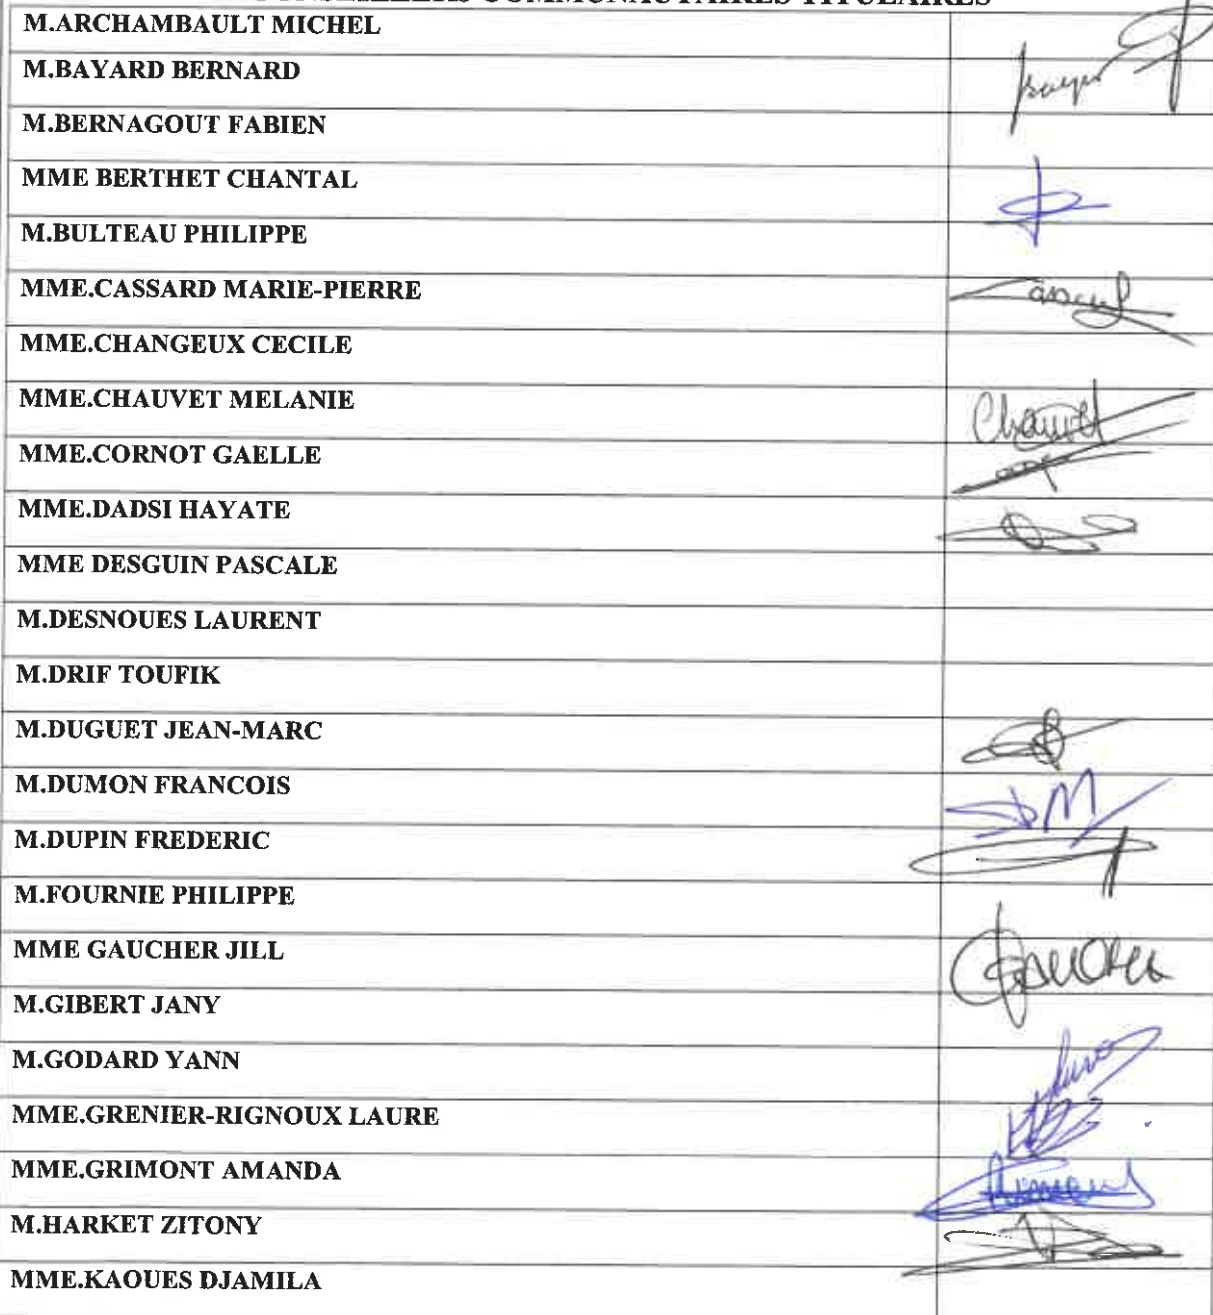 COMMUNAUTAIRES TITULAIRES
M.ARCHAMBAULT MICHEL
M.BAYARD BERNARD
M.BERNAGOUT FABIEN
MME BERTHET CHANTAL
M.BULTEAU PHILIPPE
MME.CASSARD MARIE-PIERRE
MME.CHANGEUX CECILE
MME.CHAUVET MELANIE
Chauvet
MME.CORNOT GAELLE
MME.DADSI HAYATE
MME DESGUIN PASCALE
M.DESNOUES LAURENT
M.DRIF TOUFIK
M.DUGUET JEAN-MARC
M.DUMON FRANCOIS
M.DUPIN FREDERIC
M.FOURNIE PHILIPPE
MME GAUCHER JILL
M.GIBERT JANY
M.GODARD YANN
MME.GRENIER-RIGNOUX LAURE
MME.GRIMONT AMANDA
M.HARKET ZITONY
MME.KAOUES DJAMILA